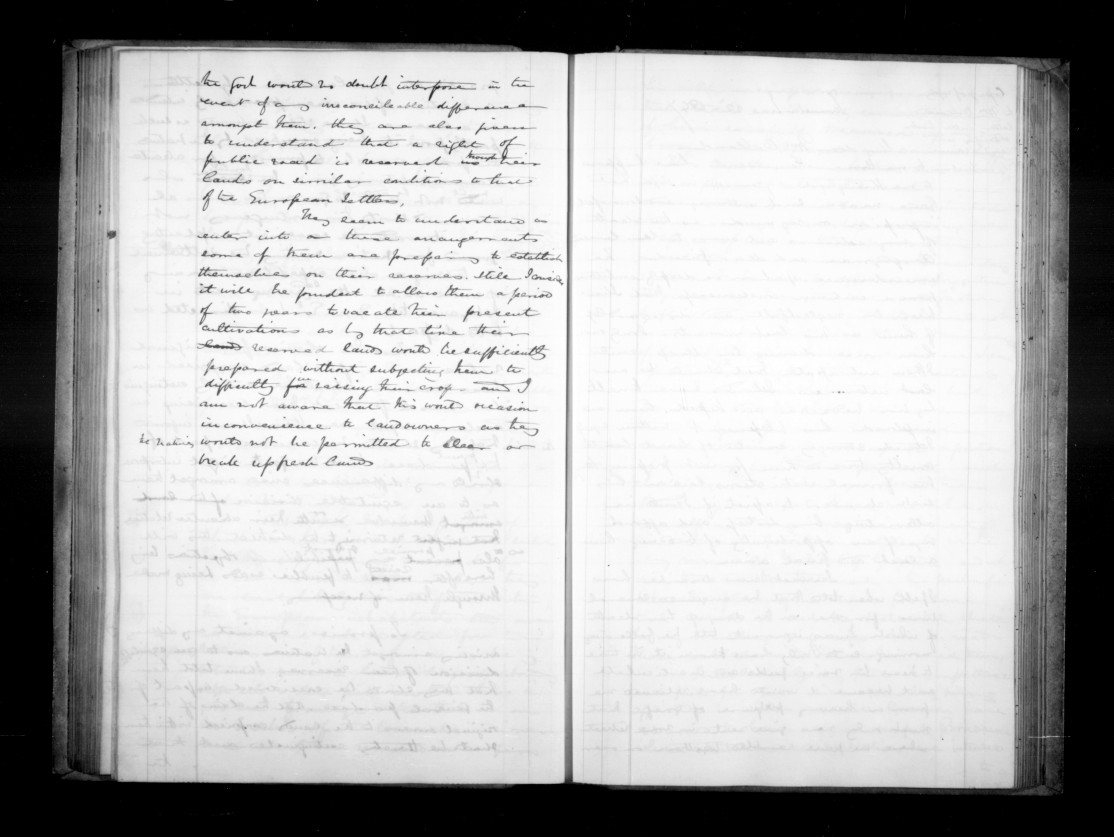 the Govt would no doubt interpose in the
event of any irreconcileable differences
amongst them. they are also given
to understand that a right of
public road is reserved through their
lands on similar conditions to those
of the European settlers.
They seem to understand &
enter into these arrangements
some of them are preparing to establish
themselves on their reserves. Still I consider
it will be prudent to allow them a period
of two years to vacate their present
cultivations as by that time their
reserved lands would be sufficiently
prepared without subjecting them to
difficulty in raising their crops. and I
am not aware that this would occasion
inconvenience to landowners as they
the natives would not be permitted to clear or
break up fresh lands